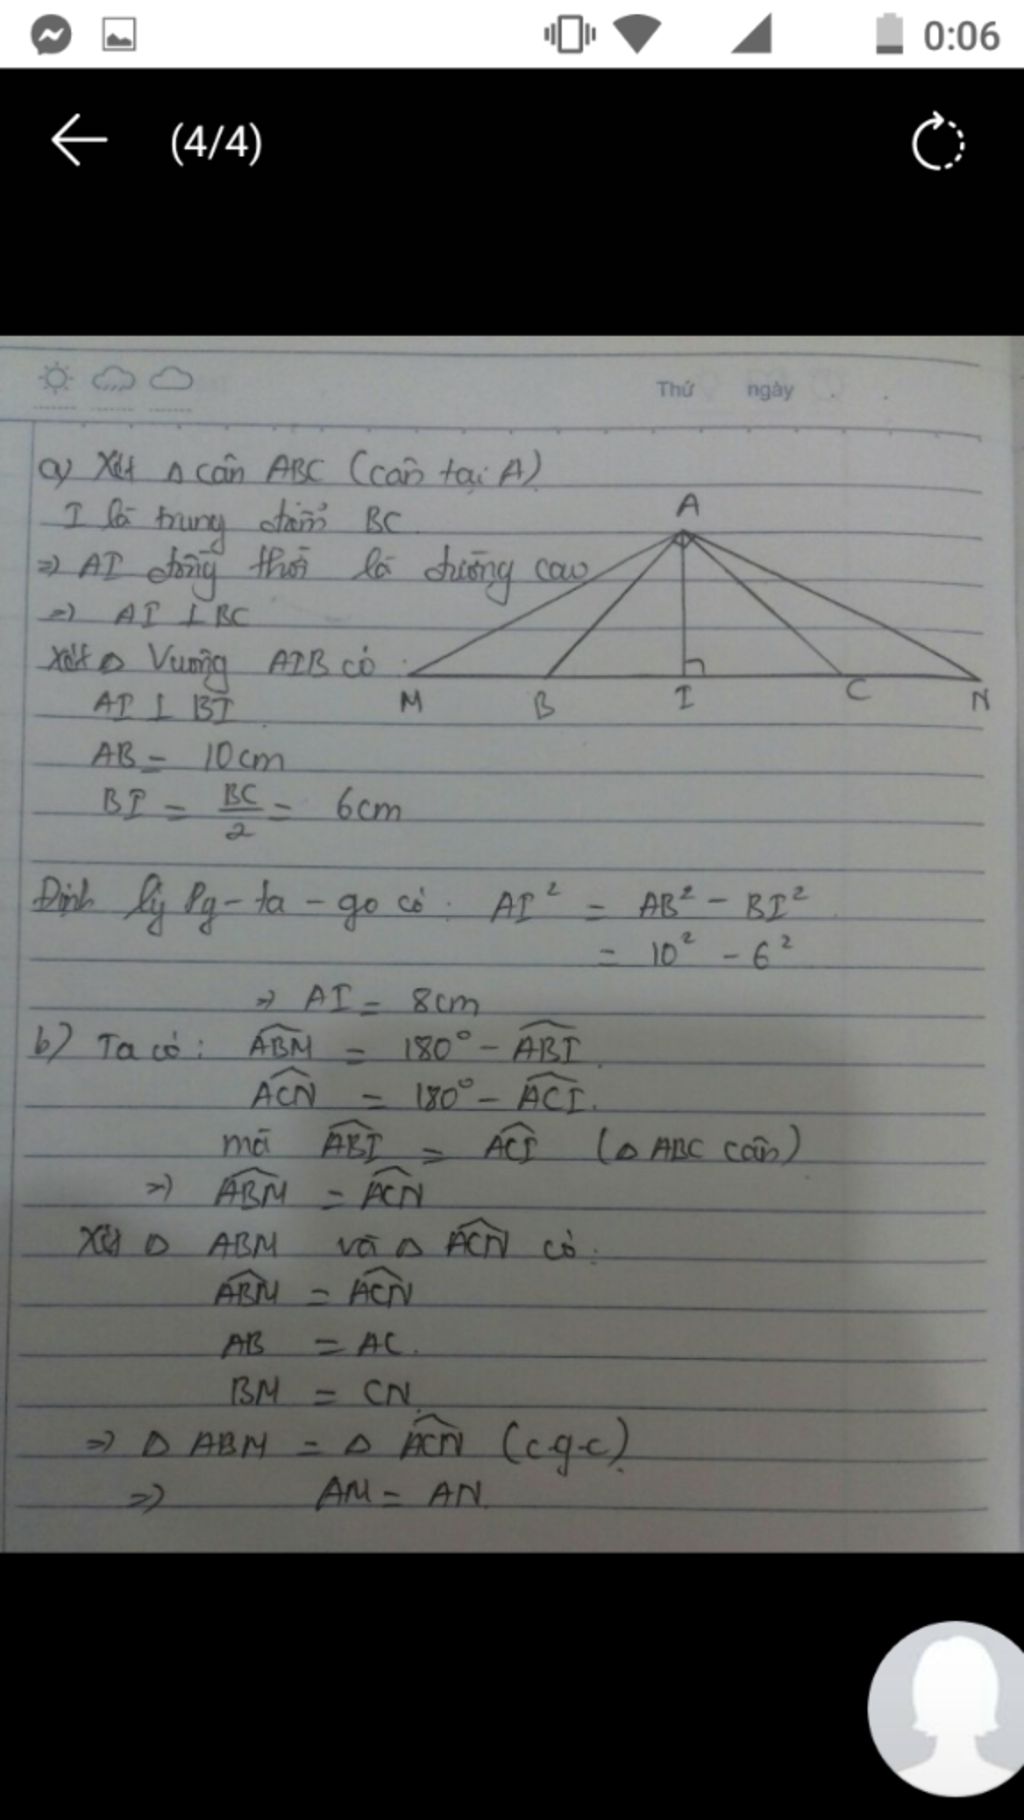 0:06
(4/4)
Thứ ngày
a) Xét Δ cân ABC (cân tại A)
I là trung điểm BC
A
=> AI đồng thời là đường cao
=> AI ⊥ BC
Xét Δ Vuông AIB có :
M B I C N
AI ⊥ BI
AB = 10cm
BI = BC/2 = 6cm
Định lý Py-ta-go có : AI² = AB² - BI²
= 10² - 6²
=> AI = 8cm
b) Ta có : \widehat{ABM} = 180° - \widehat{ABI}
\widehat{ACN} = 180° - \widehat{ACI}.
mà \widehat{ABI} = \widehat{ACI} (Δ ABC cân)
=> \widehat{ABM} = \widehat{ACN}
Xét Δ ABM và Δ \widehat{ACN} có :
\widehat{ABM} = \widehat{ACN}
AB = AC.
BM = CN.
=> Δ ABM = Δ \widehat{ACN} (c.g.c).
=> AM = AN.